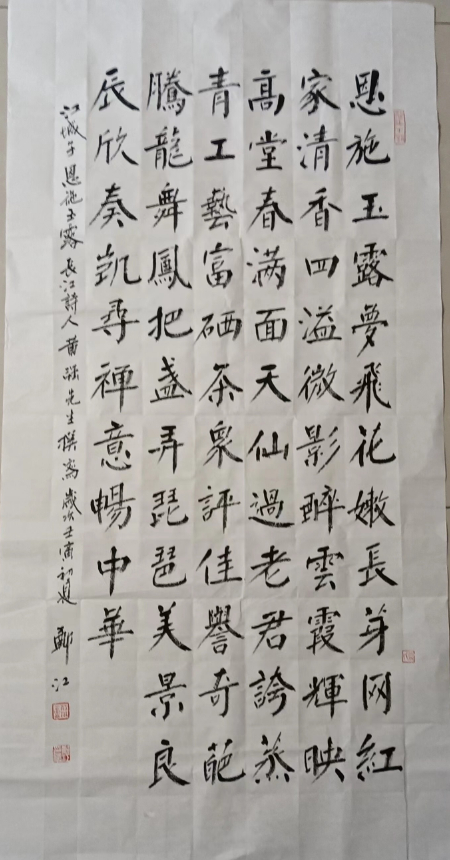 恩施玉露夢飛花嫩長芽网紅
家清香四溢微影醉雲霞輝映
高堂春满面天仙過老君誇蒸
青工藝富硒茶衆評佳譽奇葩
騰龍舞鳳把盞弄琵琶美景良
辰欣奏凱尋禪意暢中華
江城子恩施玉露長江詩人黄强先生撰歲次壬寅初夏 鄭江